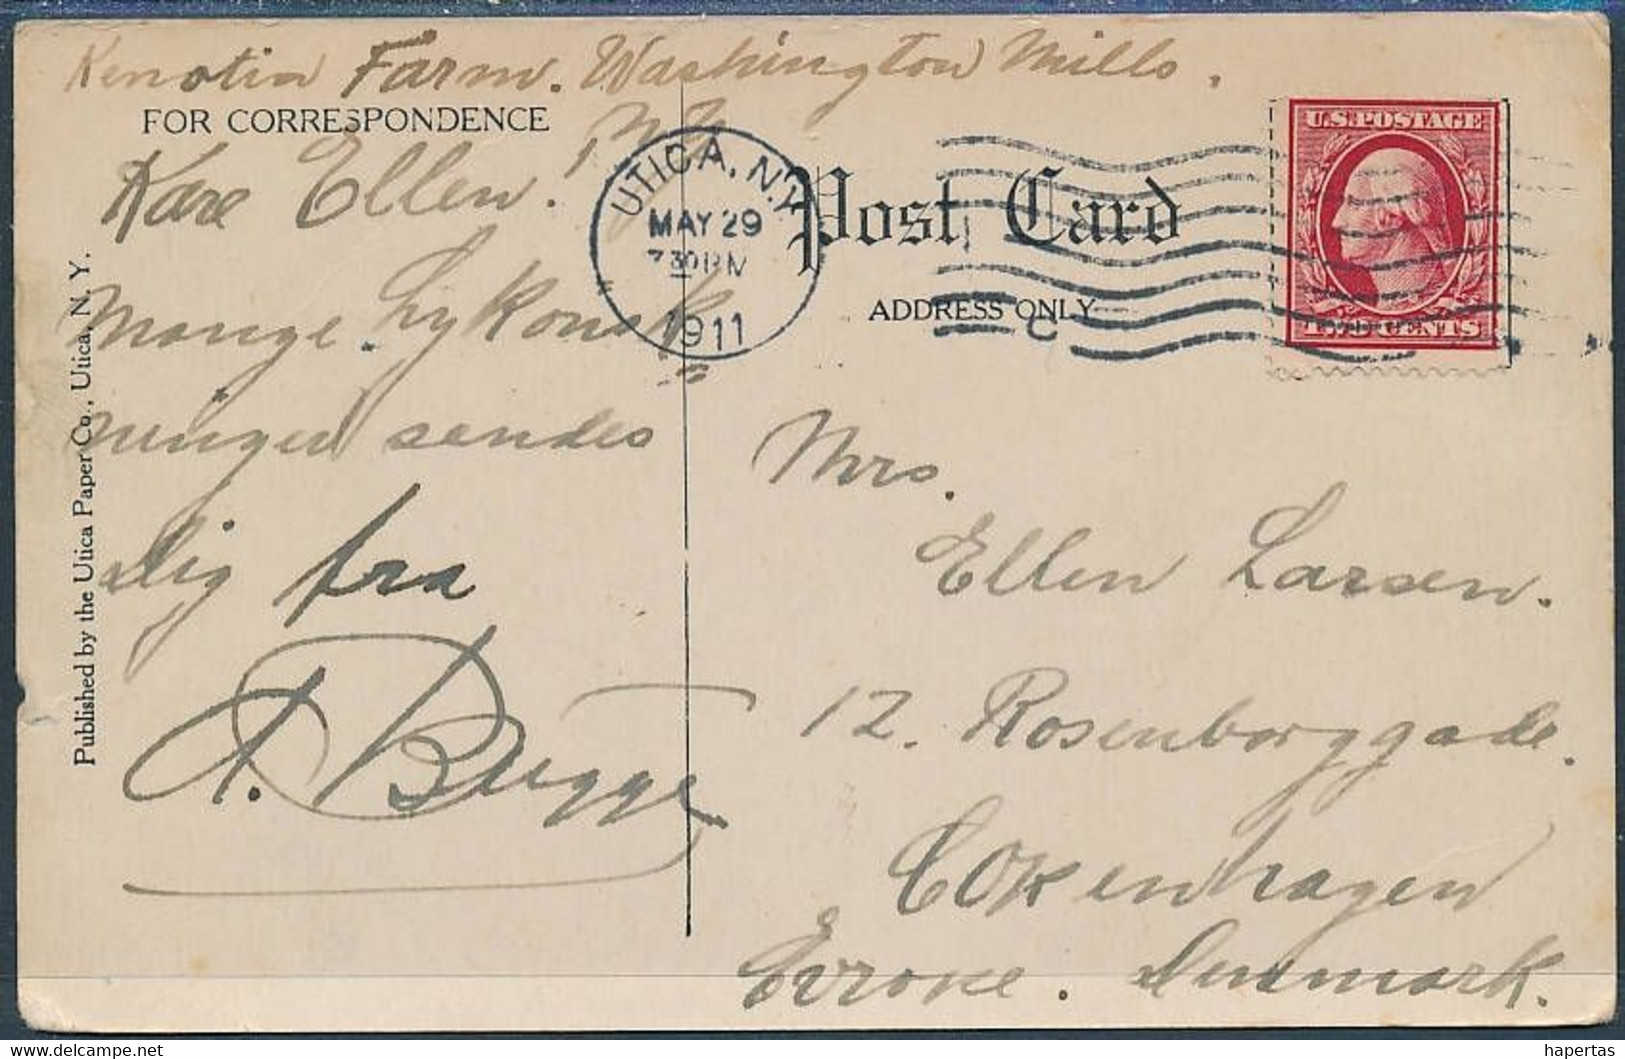 Kenotin Farm. Washington Mills.
N.Y.
FOR CORRESPONDENCE
Kære Ellen!
Mange Lykønsk
ninger sendes
dig fra
A. Bugge
Published by the Utica Paper Co., Utica, N. Y.
UTICA, N.Y.
MAY 29
7 30 PM
1911
Post Card
ADDRESS ONLY
U.S. POSTAGE
TWO CENTS
Mrs.
Ellen Larsen.
12. Rosenborggade.
Copenhagen
Evrope. Denmark.
hapertas